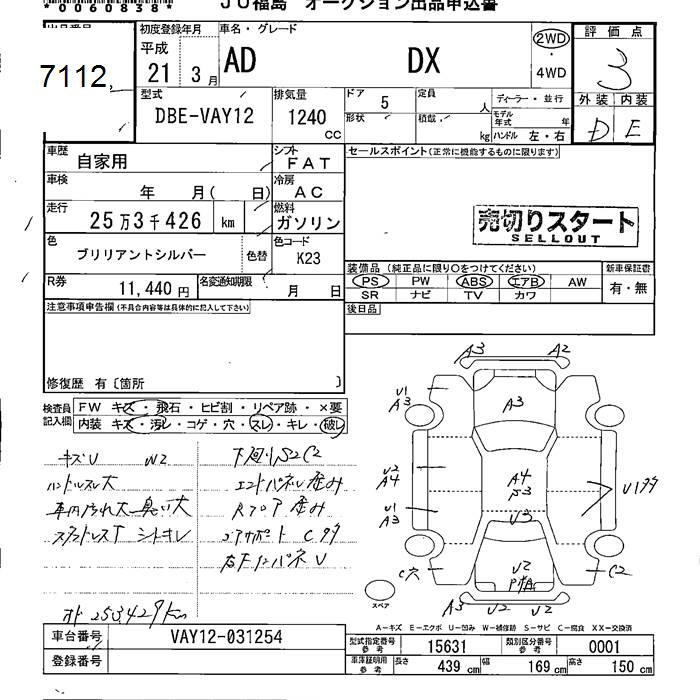 *0060838* JU福島 オークション出品申込書
7112,
初度登録年月 車名・グレード 評価点
平成 21 3月 AD DX 2WD 3
4WD
型式 排気量 ドア 5 定員 人 ディーラー・並行 外装 内装
DBE-VAY12 1240 cc 形状 積載 kg モデル年式 年 D E
ハンドル 左・右
車歴 自家用 シフト FAT セールスポイント(正常に機能するものに限ります)
車検 年 月( 日) 冷房 AC
走行 25万3千426 km 燃料 ガソリン 売切りスタート
SELLOUT
色 ブリリアントシルバー 色替 色コード K23
装備品(純正品に限り○をつけてください) 新車保証書
R券 11,440円 名変通知期限 月 日 PS PW ABS エアB AW 有・無
SR ナビ TV カワ
注意事項申告欄(不具合内容等は具体的に記入して下さい) 後日品
修復歴 有〔箇所 〕
検査員記入欄 FW キズ・飛石・ヒビ割・リペア跡・×要
内装 キズ・汚レ・コゲ・穴・スレ・キレ・破レ
キズU W2 下廻りS2C2
ハンドルスレ大 エンドパネル歪み
車内汚れ大 臭い大 Rフロア 歪み
スタッドレスT シートキレ コアサポート C多
右Fインパネ U
メーター 253,429km
A3 A2
U1 A3 A3
U2 A4 A4
U1 A3 U3 U1多
C穴 U2 C2
A3 U2 U2
スペア
A−キズ E−エクボ U−凹み W−補修跡 S−サビ C−腐食 XX−交換済
車台番号 VAY12-031254 型式指定番号 参考 15631 類別区分番号 参考 0001
登録番号 車庫証明用 参考 長さ 439 cm 幅 169 cm 高さ 150 cm